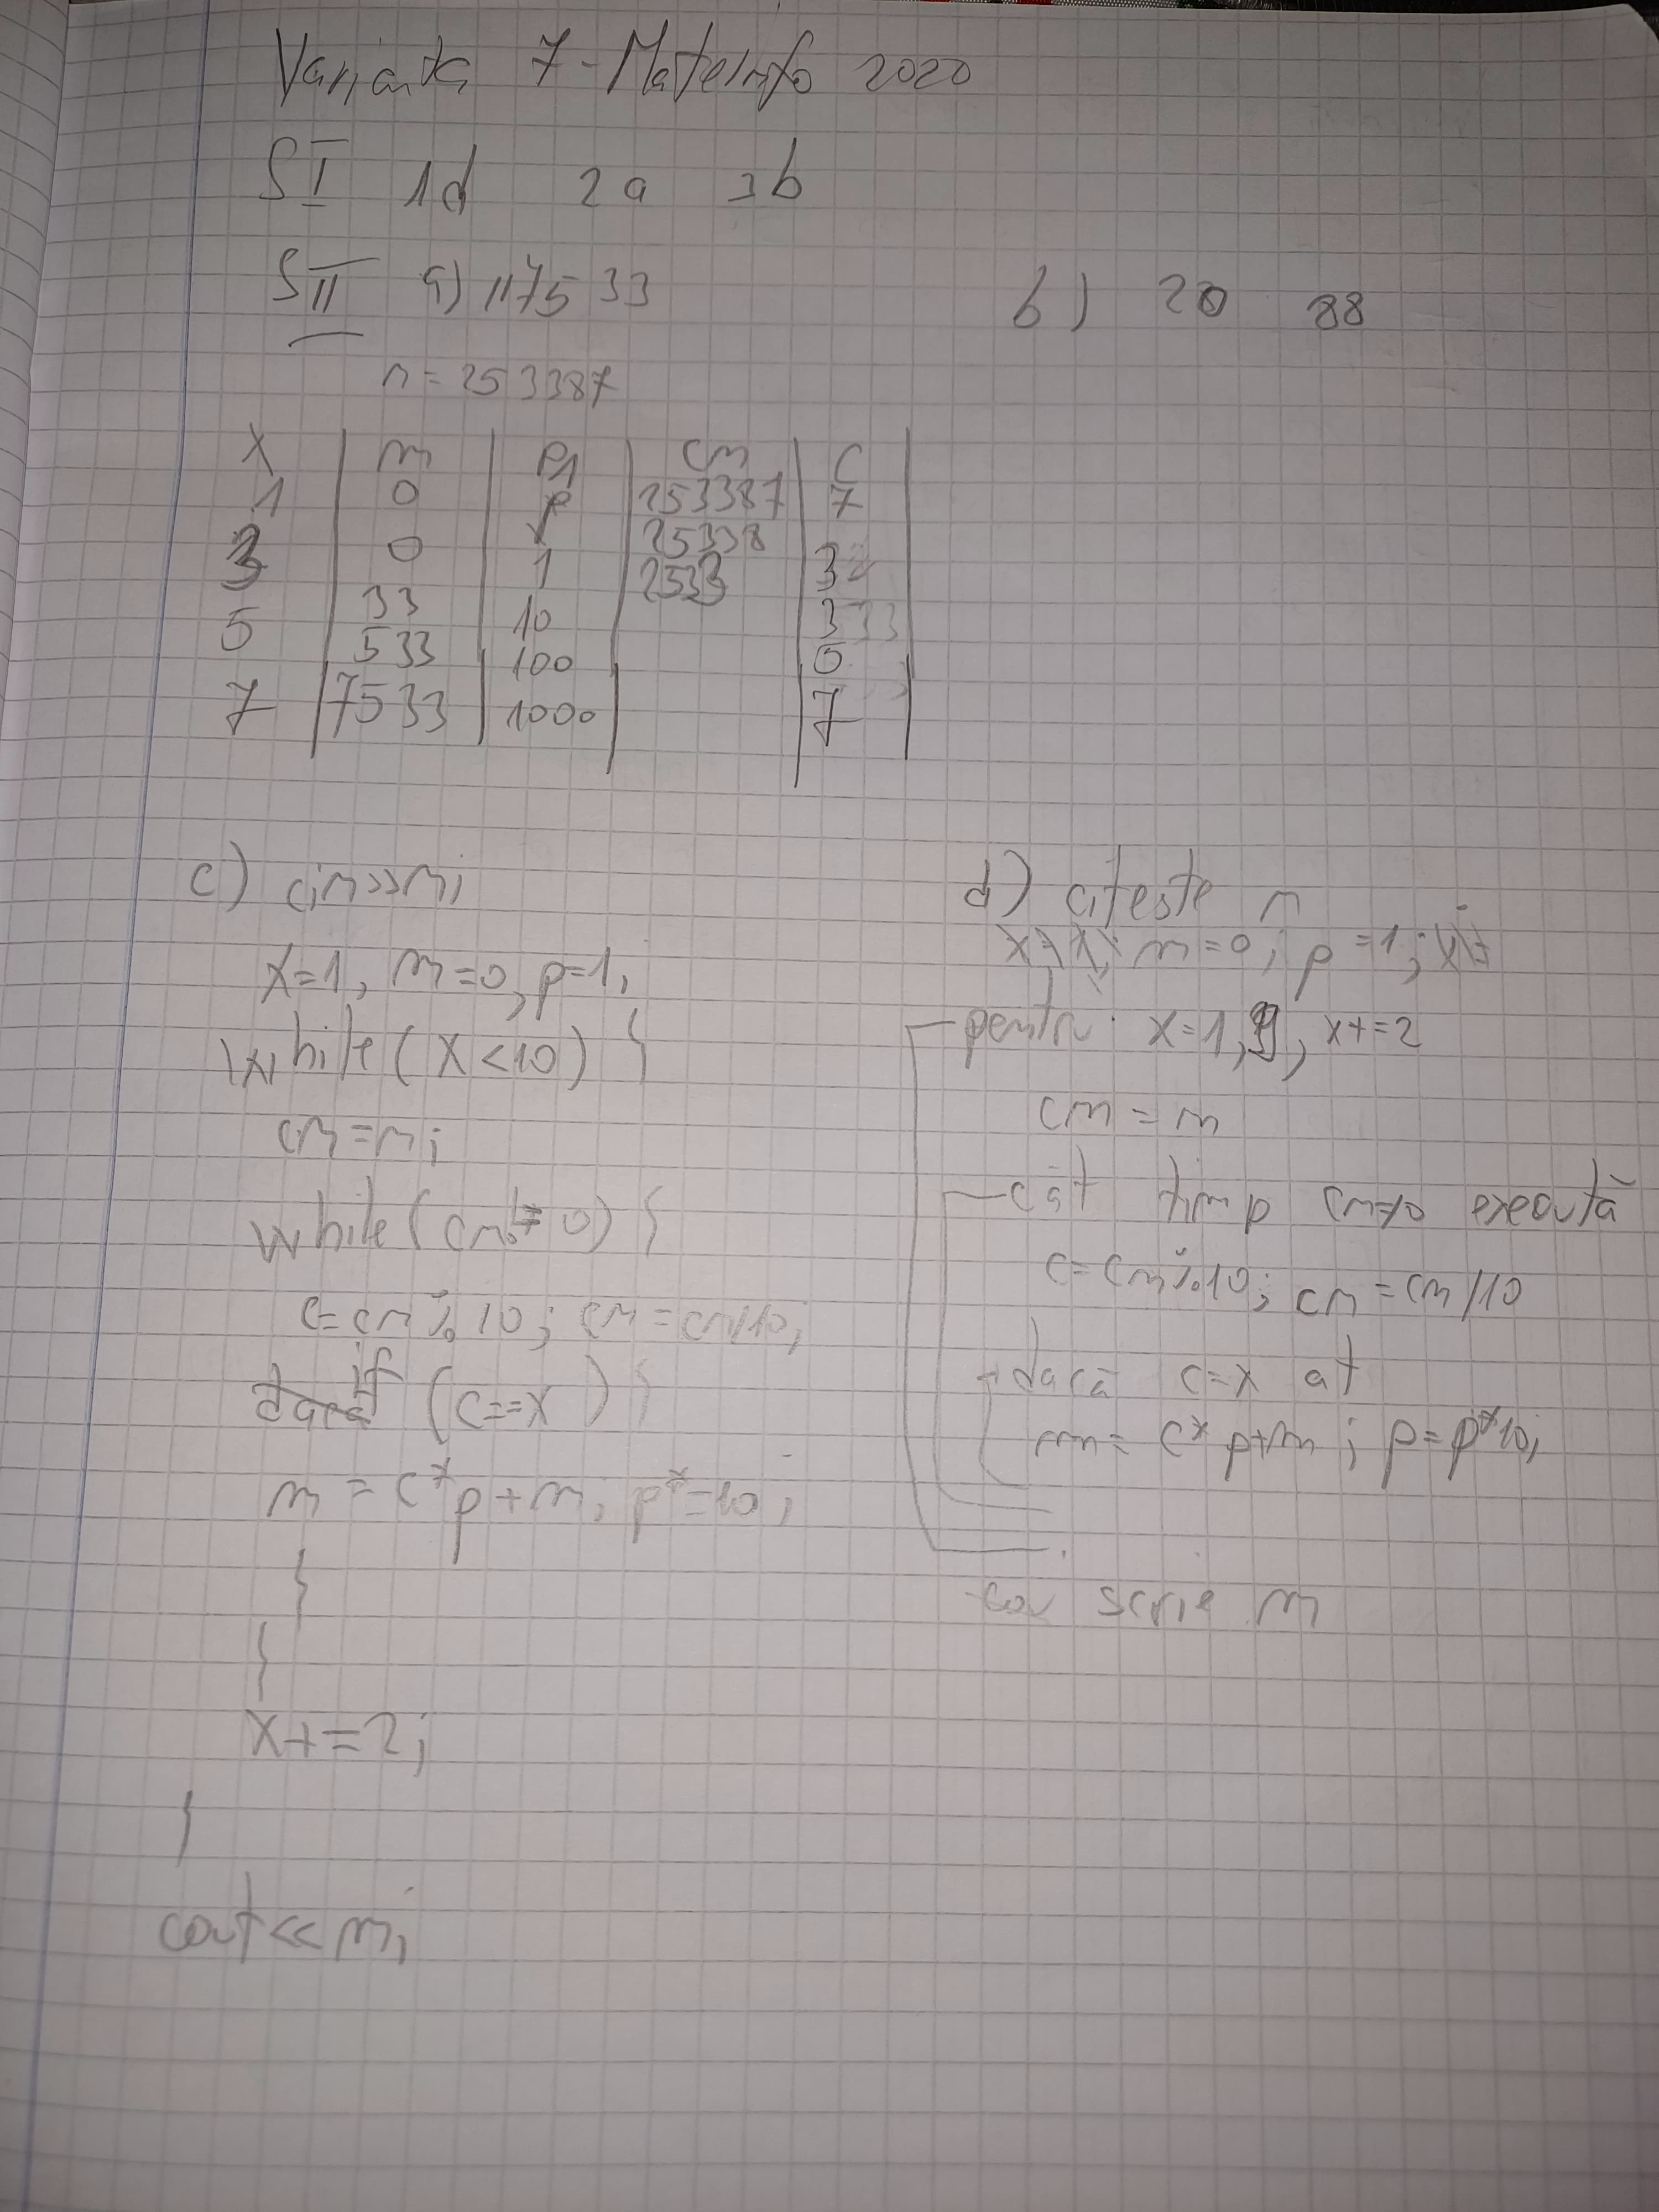 Varianta 7 - MateInfo 2020
S I 1d 2a 3b
S II a) 117533
b) 20 88
n = 253387
x m p cn c
1 0 1 253387 7
25338
3 0 1 2533 3
33 10 3
5 533 100 5
7 7533 1000 7
c) cin>>n;
x=1, m=0, p=1;
while (x<10) {
cn=n;
while (cn!=0) {
c=cn%10; cn=cn/10;
if (c==x) {
m = c*p+m; p*=10;
}
}
x+=2;
}
cout<<m;
d) citeste n
m=0; p=1;
pentru x=1,9, x+=2
cn = n
cât timp cn≠0 execută
c=cn%10; cn=cn/10
dacă c=x at
m= c*p+m; p=p*10;
scrie m